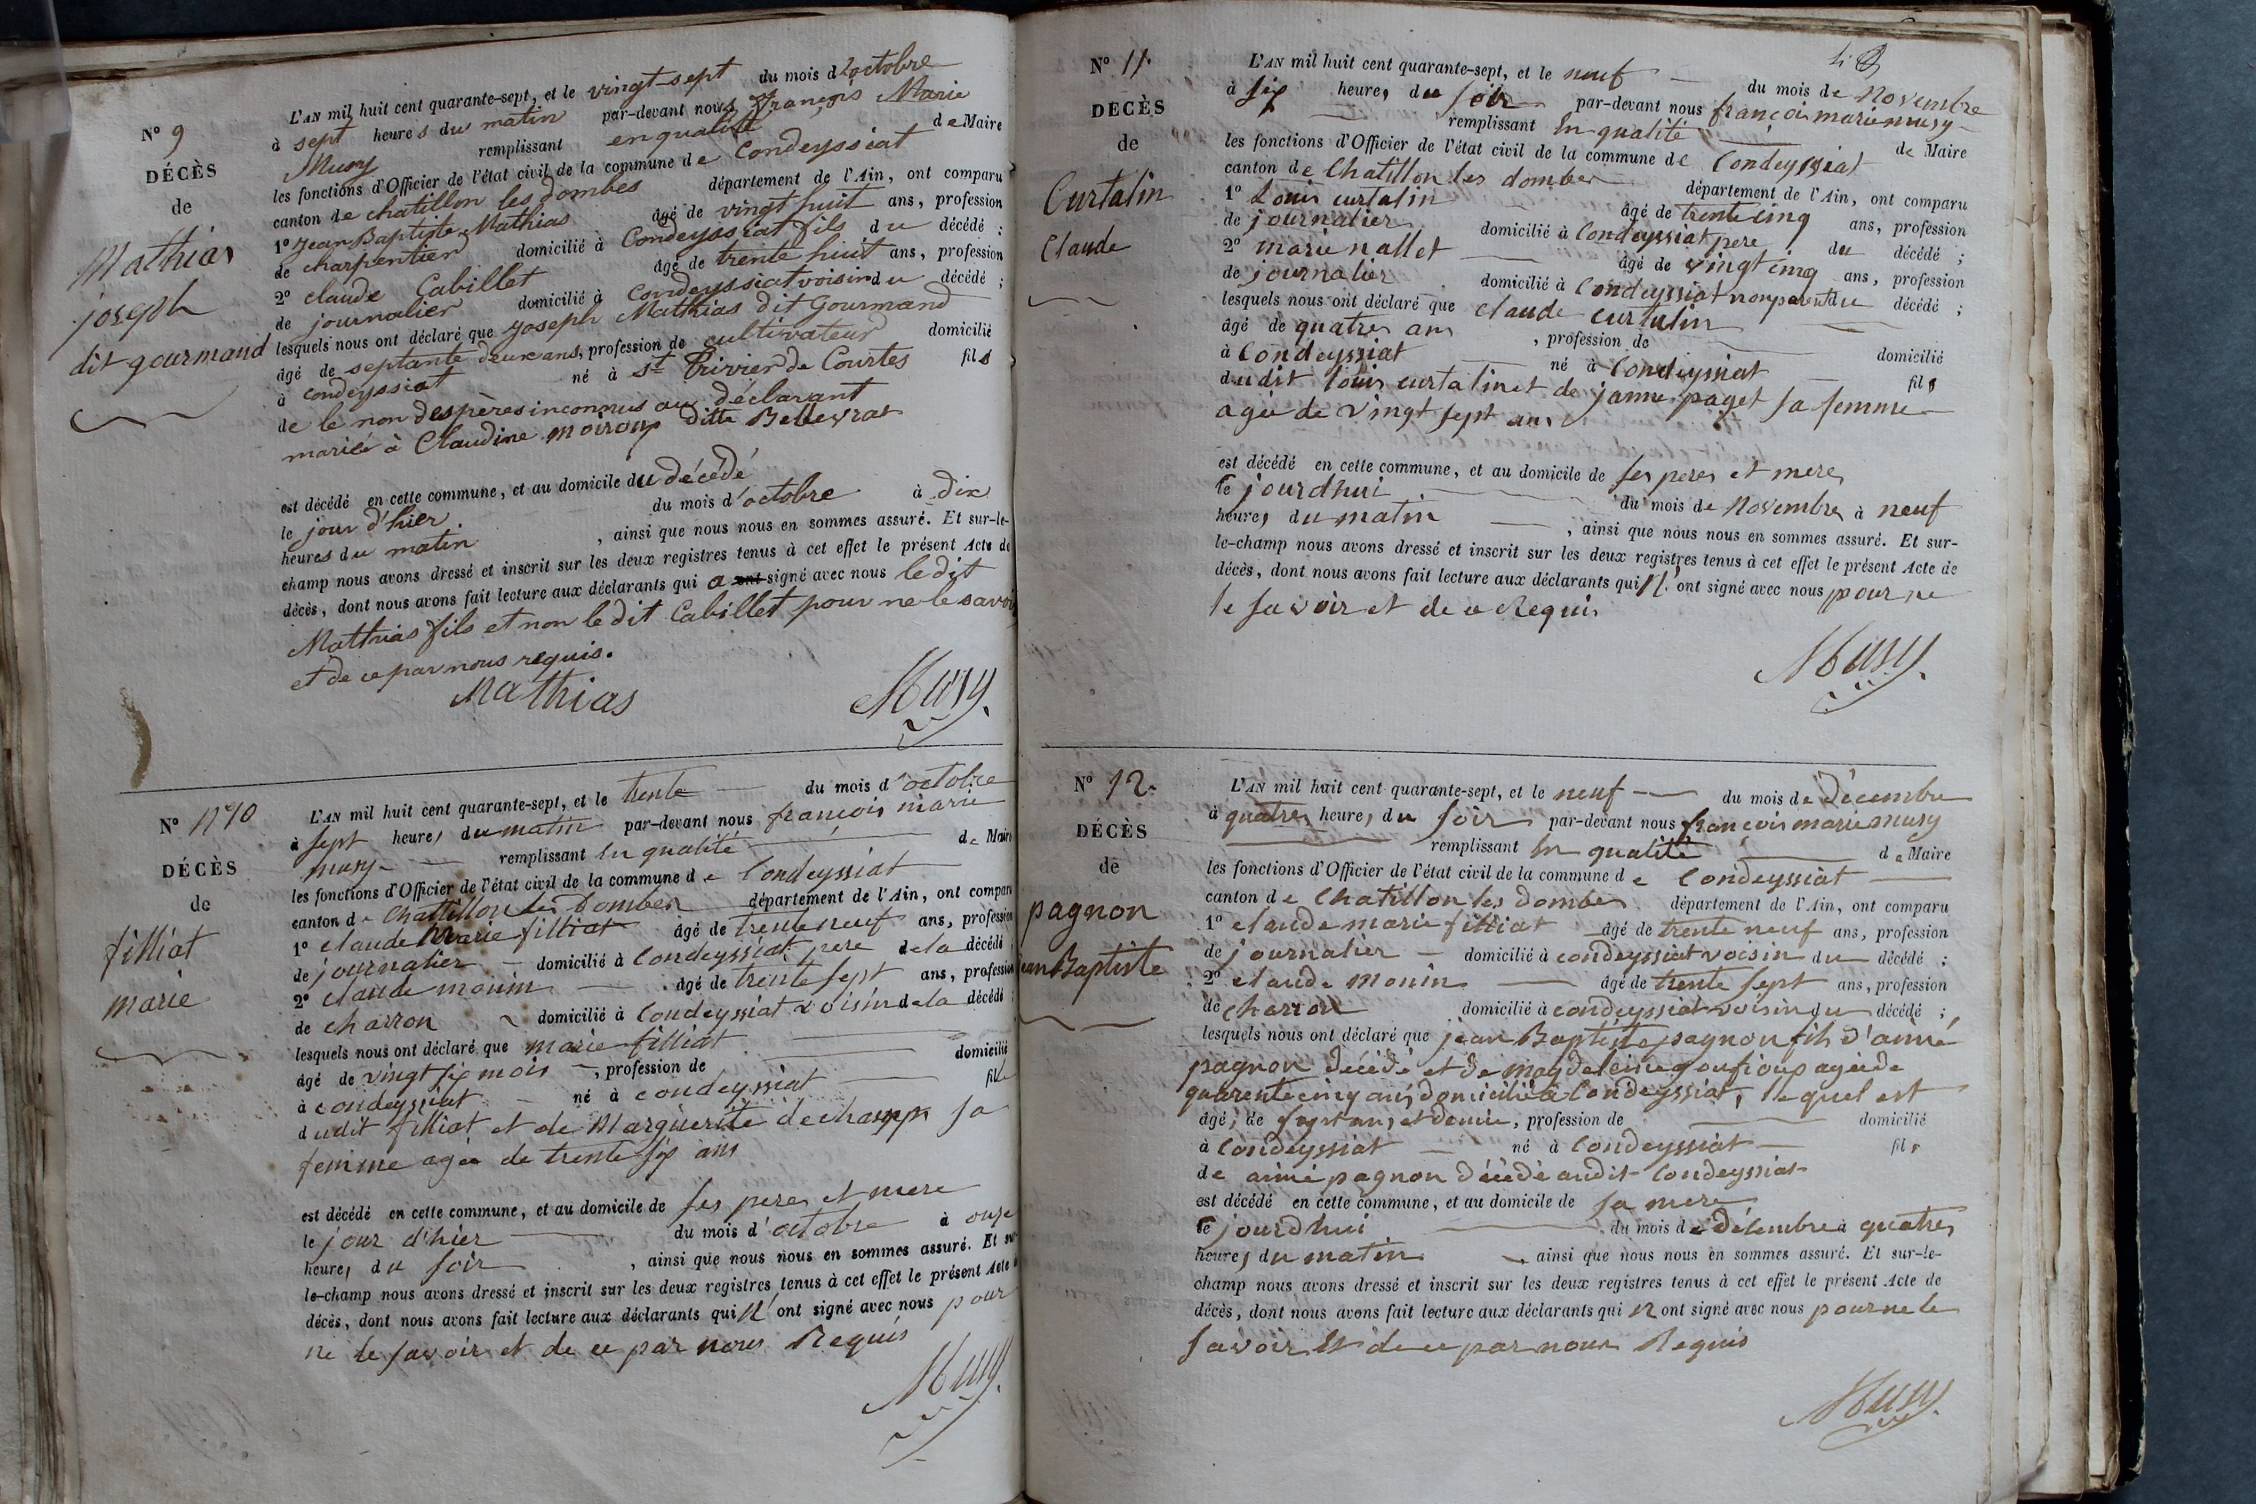 N° 9
DÉCÈS
de
Mathias
joseph
dit gourmand
L'AN mil huit cent quarante-sept, et le vingt-sept du mois d'octobre
à sept heures du matin par-devant nous François Marie
Musy remplissant en qualité de Maire
les fonctions d'Officier de l'état civil de la commune de Condeyssiat
canton de chatillon les dombes département de l'Ain, ont comparu
1° Jean Baptiste Mathias âgé de vingt huit ans, profession
de charpentier domicilié à Condeyssiat fils du décédé ;
2° claude Cabillet âgé de trente huit ans, profession
de journalier domicilié à Condeyssiat voisin du décédé ;
lesquels nous ont déclaré que joseph Mathias dit Gourmand
âgé de septante deux ans, profession de cultivateur domicilié
à condeyssiat né à St Trivier de Courtes fils
de le non des pères inconnus au déclarant
marié à Claudine ditte
est décédé en cette commune, et au domicile du décédé
le jour d'hier du mois d'octobre à dix
heures du matin , ainsi que nous nous en sommes assuré. Et sur-le-
champ nous avons dressé et inscrit sur les deux registres tenus à cet effet le présent Acte de
décès, dont nous avons fait lecture aux déclarants qui a ont signé avec nous le dit
Mathias fils et non le dit Cabillet pour ne le savoir
et de ce par nous requis.
Mathias Musy
N° 10
DÉCÈS
de
filliat
marie
L'AN mil huit cent quarante-sept, et le trente du mois d'octobre
à sept heures du matin par-devant nous françois marie
musy remplissant en qualité de Maire
les fonctions d'Officier de l'état civil de la commune de Condeyssiat
canton de Chatillon les Dombes département de l'Ain, ont comparu
1° claude Marie filliat âgé de trente neuf ans, profession
de journalier domicilié à Condeyssiat pere de la décédé
2° claude monin âgé de trente sept ans, profession
de charron domicilié à Condeyssiat voisin de la décédé
lesquels nous ont déclaré que marie filliat
âgé de vingt six mois , profession de domicilié
à condeyssiat né à condeyssiat fille
dudit filliat et de Marguerite dechamps sa
femme agée de trente six ans
est décédé en cette commune, et au domicile de ses peres et mere
le jour d'hier du mois d'octobre à onze
heures du soir , ainsi que nous nous en sommes assuré. Et sur
le-champ nous avons dressé et inscrit sur les deux registres tenus à cet effet le présent Acte
décès, dont nous avons fait lecture aux déclarants qui n'ont signé avec nous pour
ne le savoir et de ce par nous Requis
Musy
N° 11.
DÉCÈS
de
Curtalin
Claude
L'AN mil huit cent quarante-sept, et le neuf du mois de Novembre
à six heures du soir par-devant nous françois marie musy
remplissant en qualité de Maire
les fonctions d'Officier de l'état civil de la commune de Condeyssiat
canton de Chatillon les dombes département de l'Ain, ont comparu
1° Louis curtalin âgé de trente cinq ans, profession
de journalier domicilié à Condeyssiat pere du décédé ;
2° marie nallet âgé de vingt cinq ans, profession
de journalier domicilié à Condeyssiat non parent du décédé ;
lesquels nous ont déclaré que claude curtalin
âgé de quatres ans , profession de domicilié
à Condeyssiat né à Condeyssiat fils
dudit louis curtalin et de janne paget sa femme
agée de vingt sept ans
est décédé en cette commune, et au domicile de ses peres et mere
le jourdhui du mois de Novembre à neuf
heures du matin , ainsi que nous nous en sommes assuré. Et sur-
le-champ nous avons dressé et inscrit sur les deux registres tenus à cet effet le présent Acte de
décès, dont nous avons fait lecture aux déclarants qui n'ont signé avec nous pour ne
le savoir et de ce Requis
Musy
N° 12.
DÉCÈS
de
pagnon
jean Baptiste
L'AN mil huit cent quarante-sept, et le neuf du mois de décembre
à quatres heures du soir par-devant nous françois marie musy
remplissant en qualité de Maire
les fonctions d'Officier de l'état civil de la commune de Condeyssiat
canton de Chatillon les dombes département de l'Ain, ont comparu
1° claude marie filliat âgé de trente neuf ans, profession
de journalier domicilié à condeyssiat voisin du décédé ;
2° claude monin âgé de trente sept ans, profession
de charron domicilié à condeyssiat voisin du décédé ;
lesquels nous ont déclaré que jean Baptiste pagnon fils d'aimé
pagnon décédé et de magdeleine agée de
quarente cinq ans domiciliée à Condeyssiat, lequel est
âgé, de sept ans et demie, profession de domicilié
à Condeyssiat né à Condeyssiat fils
de aimé pagnon décédé audit Condeyssiat
est décédé en cette commune, et au domicile de sa mere
le jourdhui du mois de décembre à quatres
heures du matin , ainsi que nous nous en sommes assuré. Et sur-le-
champ nous avons dressé et inscrit sur les deux registres tenus à cet effet le présent Acte de
décès, dont nous avons fait lecture aux déclarants qui n ont signé avec nous pour ne le
savoir Et de ce par nous Requis
Musy